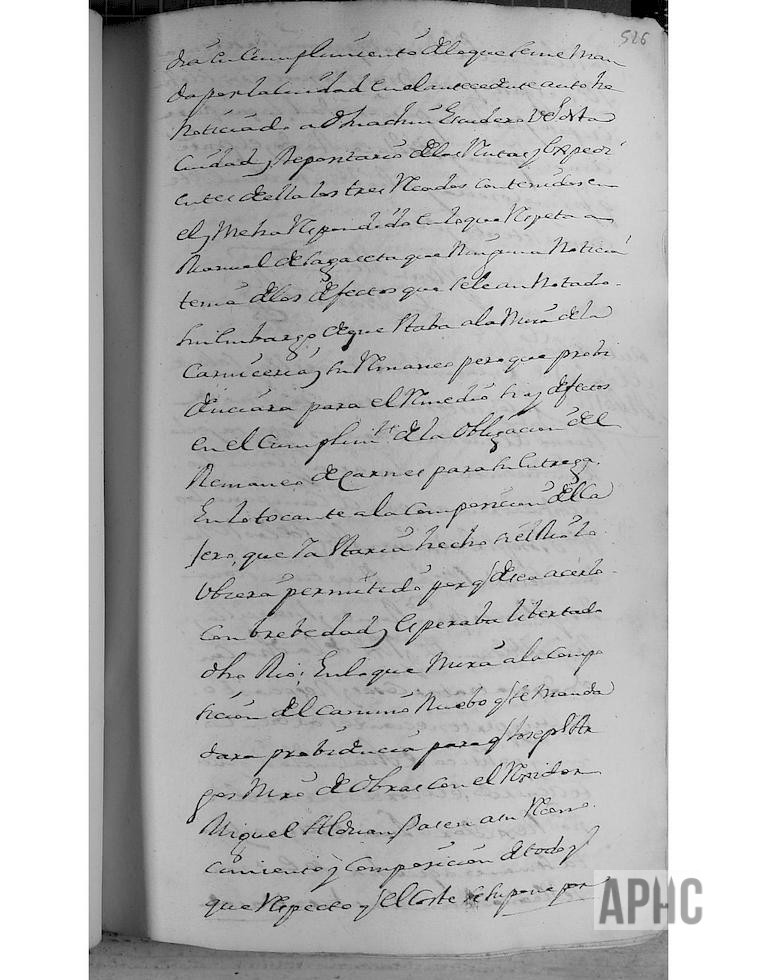 526
dia en Cumplimiento de lo que se me man
da por la Ciudad en el antecedente auto he
noticiado a Dn Escudero de esta
Ciudad, y Depositario de los Autos y Expedi
entes de ella los tres contenidos en
el, y me ha Respondido en lo que Respeta a
Manuel de que Ninguna Noticia
tenia de los defectos que se le an Notado
sin Embargo de que estaba a la Mira de la
Carniceria, y su Remanes pero que probi
denciara para el Remedio si ay defectos
en el Cumplimto de la Obligacion del
Remanes de Carnes para su Entrega.
En lo tocante a la Composicion de la
que ya estaria hecho si el Rio lo
Ubiera permitido por q desea acerlo
Con brebedad, y esperaba libertad
dho Rio; En lo que Mira a la Compo
sicion del Camino Nuebo q se
dara probidencia para q Joseph
Mro de Obras con el Rexidor
Miguel pasen a su Recono
cimiento y Composicion de todo
que Respecto q el Coste se supone por
APHC